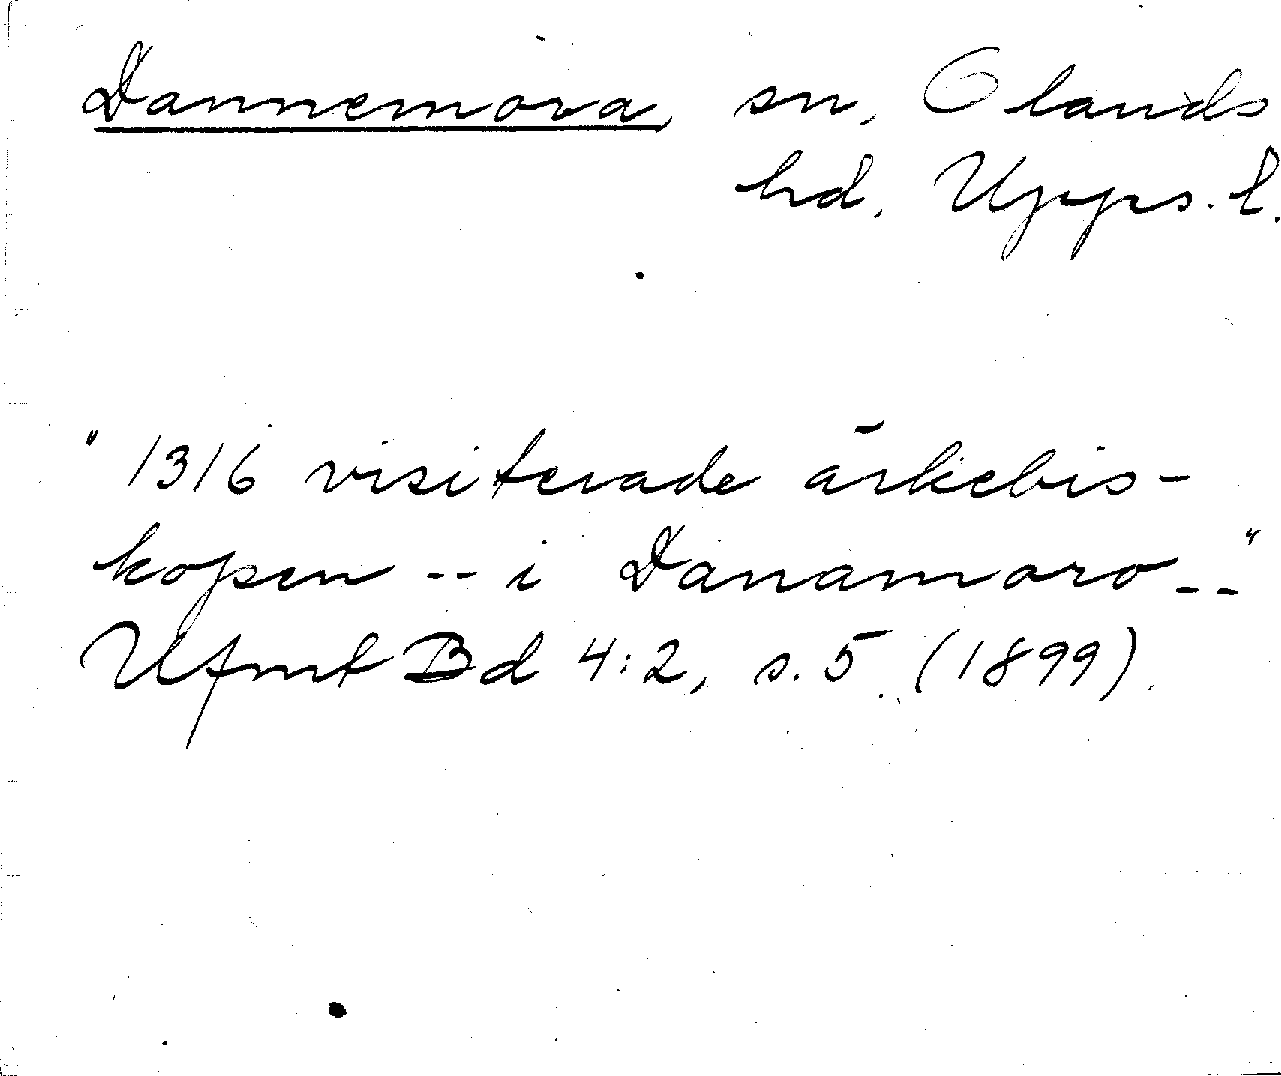 Dannemora, sn, Olands
hd, Upps. l.
"1316 visiterade ärkebis-
kopen -- i Danamoro --"
Ufmt Bd 4:2, s. 5. (1899).